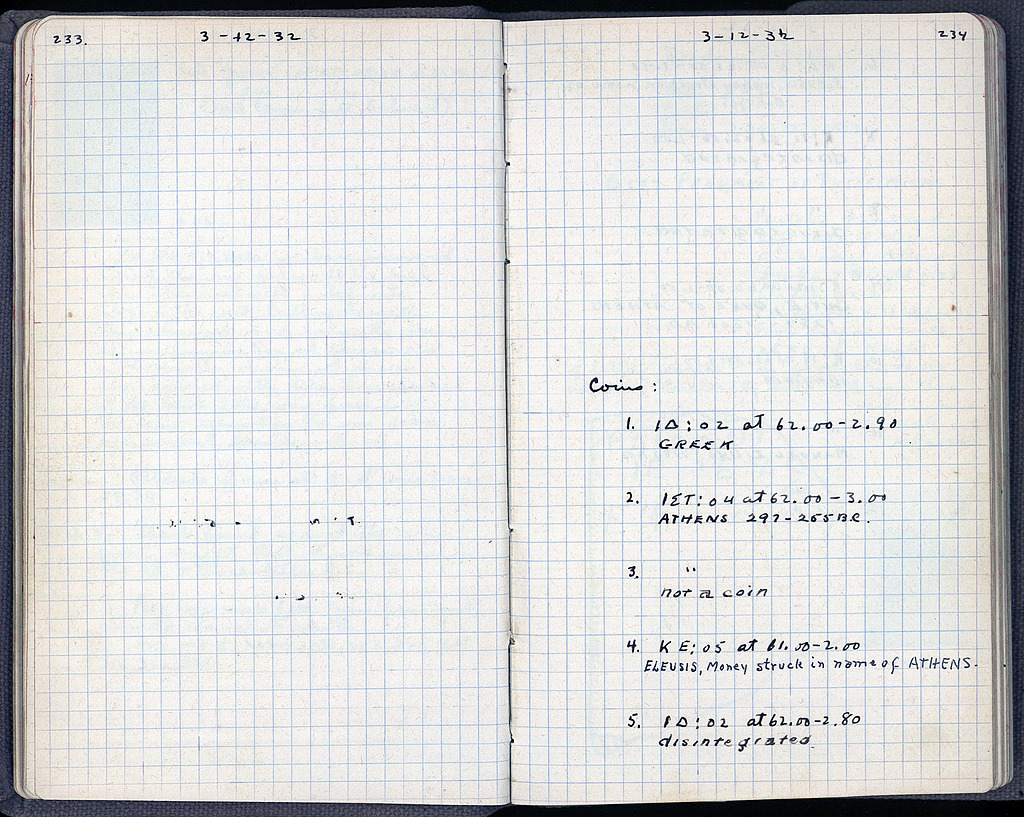 233.
3-12-32
3-12-32
234
Coins:
1. ΙΔ:02 at 62.00-2.90
GREEK
2. ΙΣΤ:04 at 62.00-3.00
ATHENS 297-265 B.C.
3. "
not a coin
4. KE:05 at 61.00-2.00
ELEUSIS, Money struck in name of ATHENS.
5. ΙΔ:02 at 62.00-2.80
disintegrated.